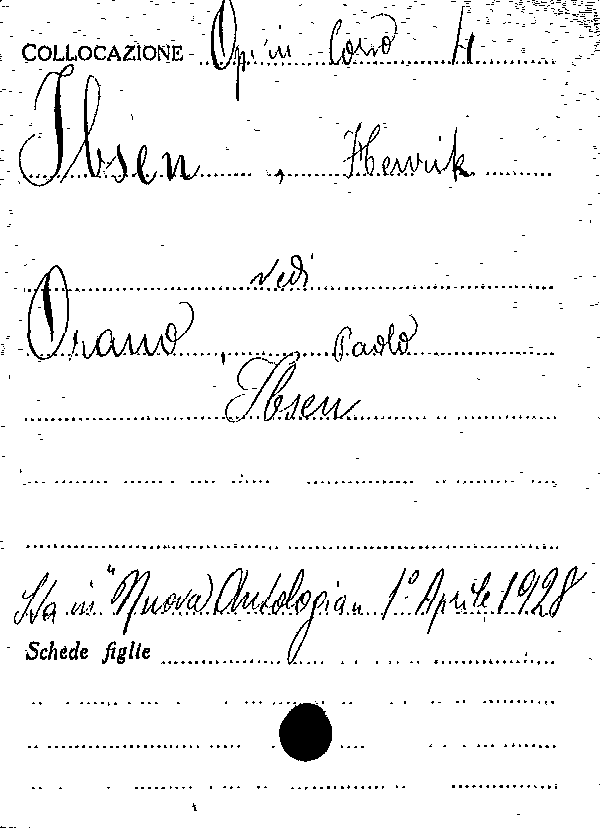 COLLOCAZIONE Op. in Corso 4
Ibsen, Henrik
vedi
Orano, Paolo
Ibsen
Sta in "Nuova Antologia" 1° Aprile 1928
Schede figlie